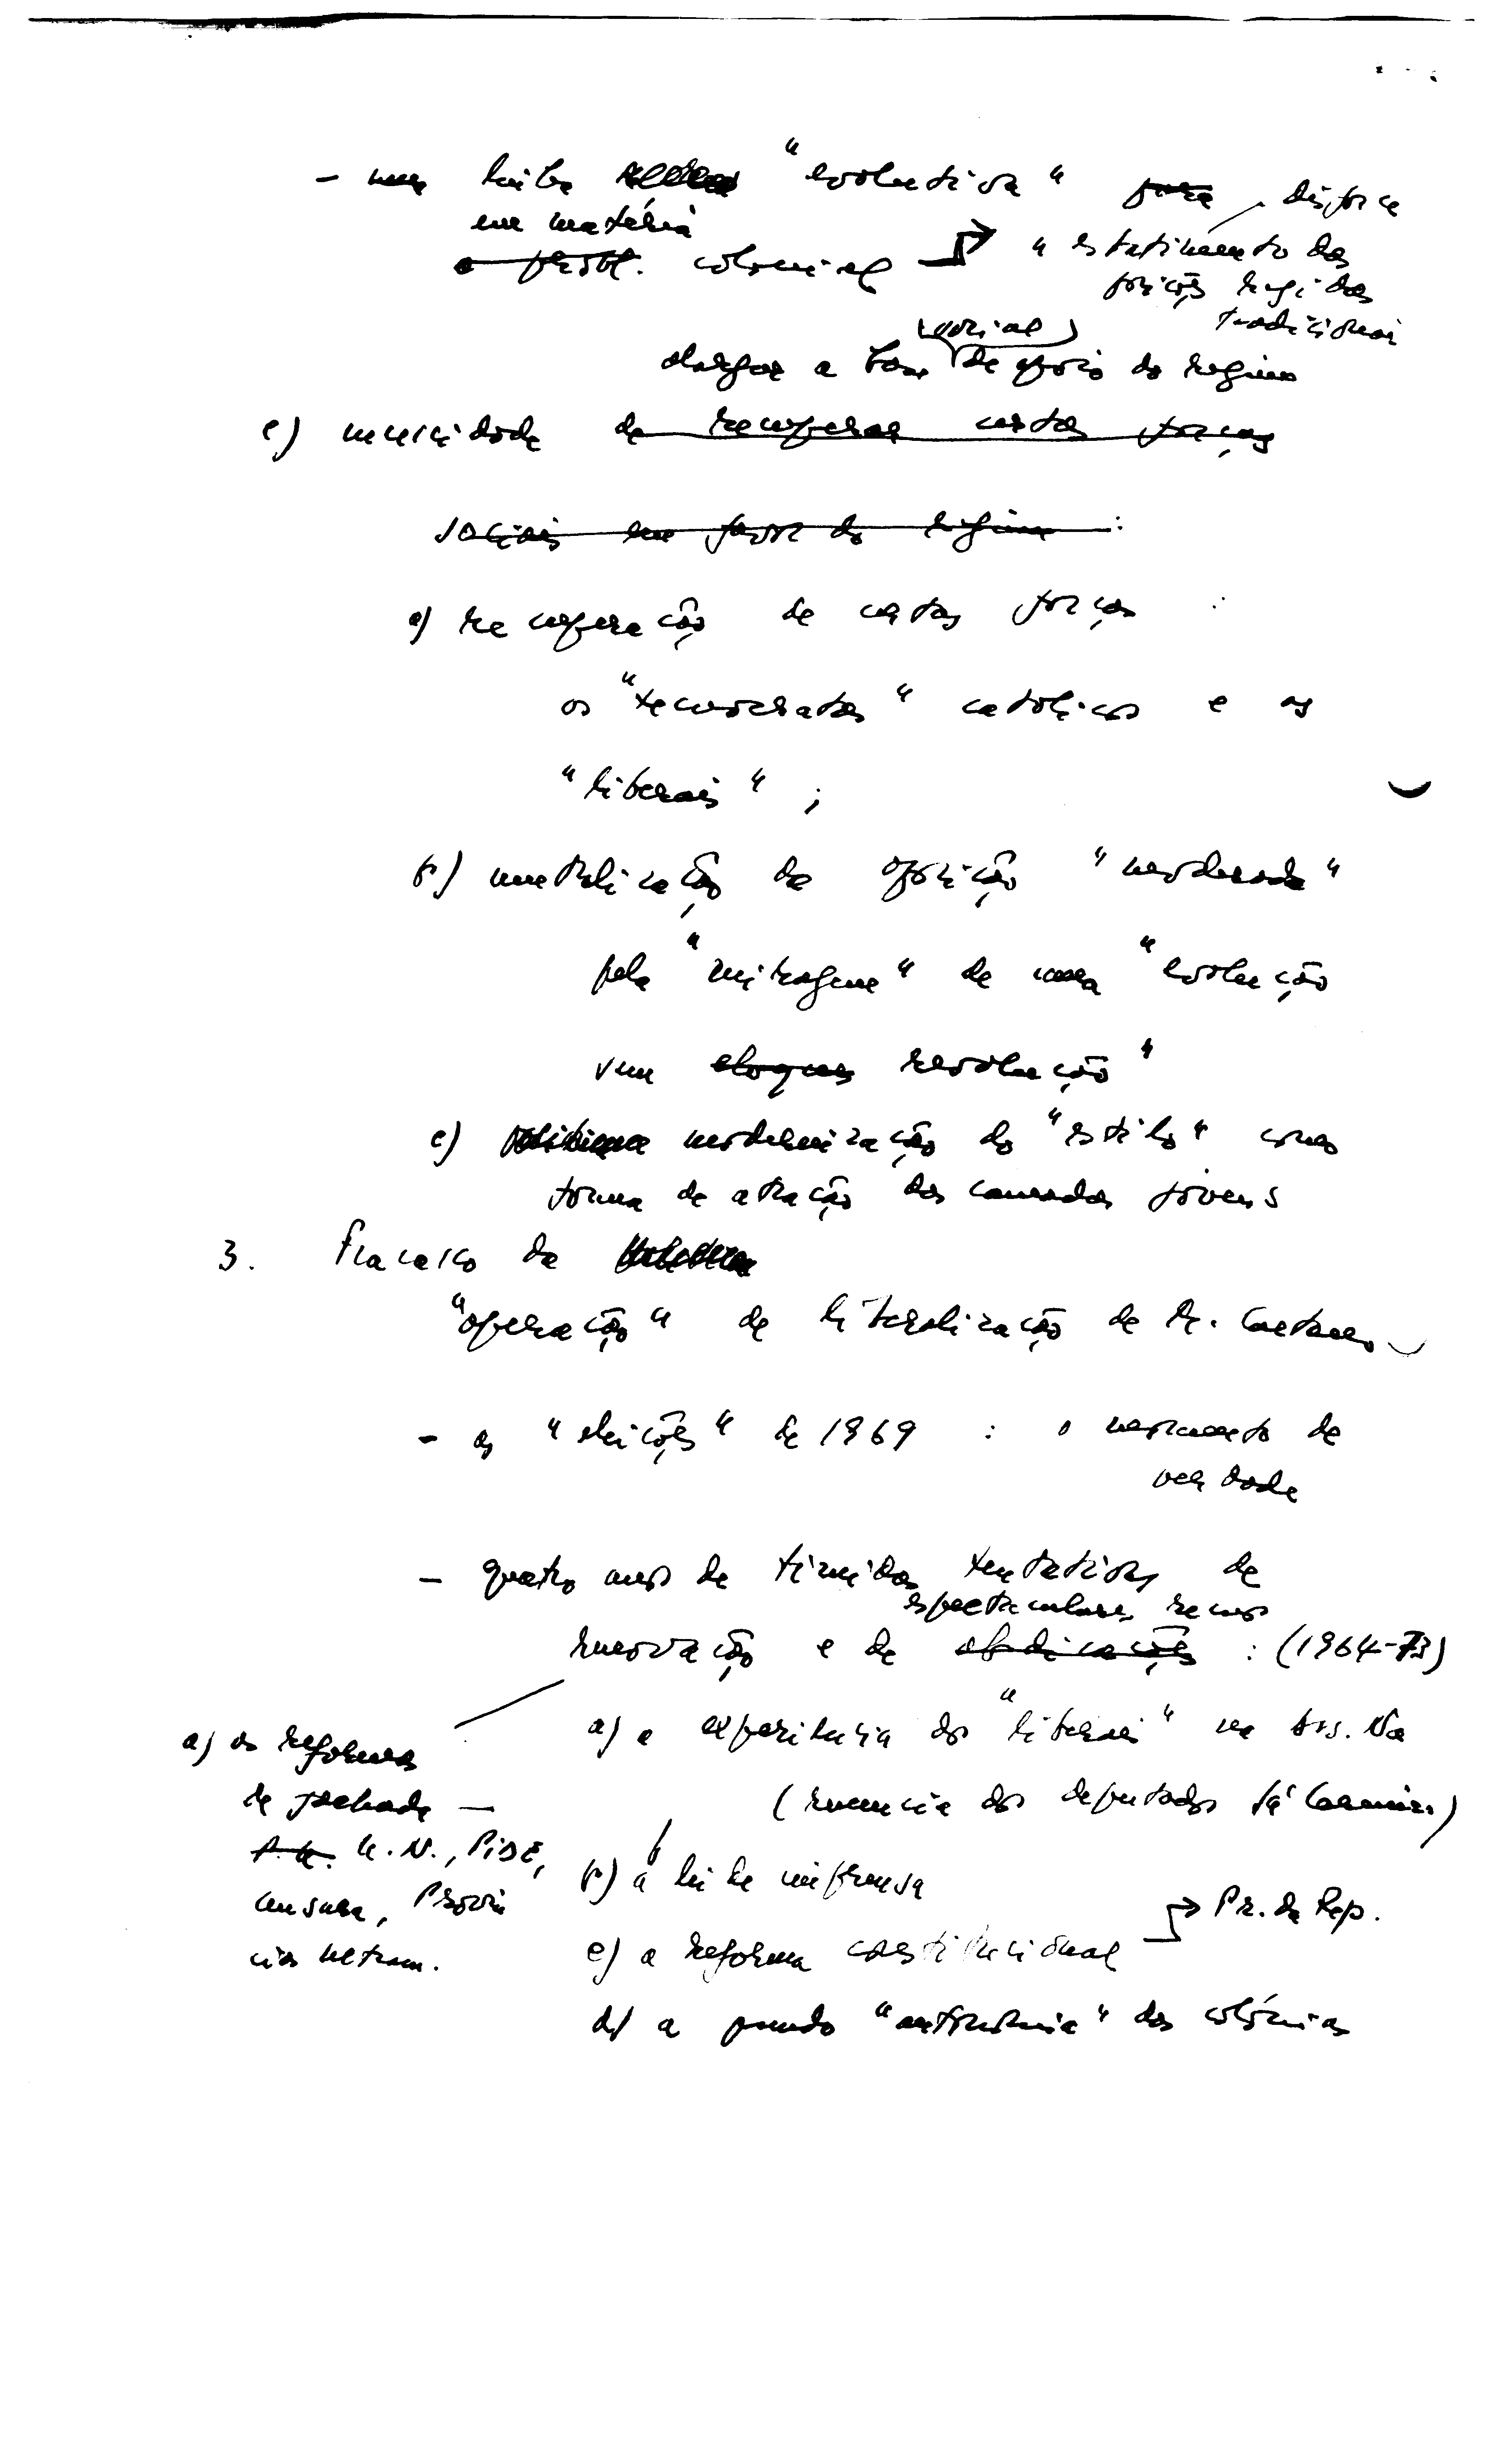 - uma linha "evolutiva" para disfarce
em matéria
o probl. colonial → "esbatimento das
posições rigidas
tradicionais
(social)
alargar a base de apoio do regime
c) necessidade de recuperar certas forças
sociais em favor do regime :
a) recuperação de certas forças :
os "tecnocratas" católicos e os
"liberais" ;
b) neutralização da oposição "moderada"
pela "miragem" de uma "evolução
sem revolução"
c) modernização do "estilo" como
forma de atração das camadas jovens
3. Fracasso da
"operação" de liberalização de M. Caetano
- as "eleições" de 1969 : o momento de
verdade
- quatro anos de tímidas tentativas de
espectaculares recuos
renovação e de abdicações : (1964-73)
a) a experiência dos "liberais" na Ass. Na
a) as reformas
de fachada —
(renuncia dos deputados Sá Carneiro)
U.N., PIDE,
b) a lei de imprensa
censura, Provín
→ Pr. da Rep.
cias Ultram.
c) a reforma constitucional
d) a pseudo "autonomia" das colónias